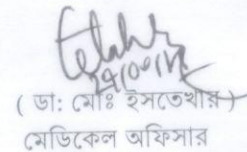 ( ডা: মোঃ ইসতেখার )
মেডিকেল অফিসার